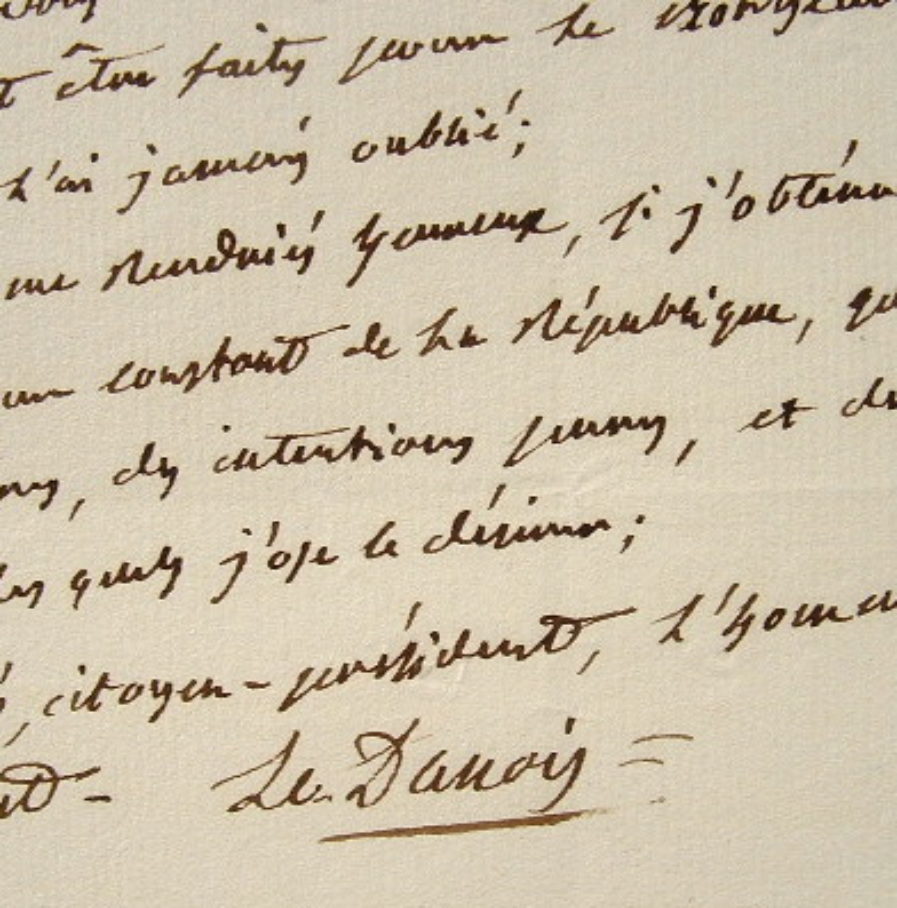 t être faits pour le
l'ai jamais oublié;
me rendriés heureux, si j'obtena
constant de la République, qu
, des intentions pures, et de
les quels j'ose le désirer;
, citoyen-président, l'homm
Le Danois =